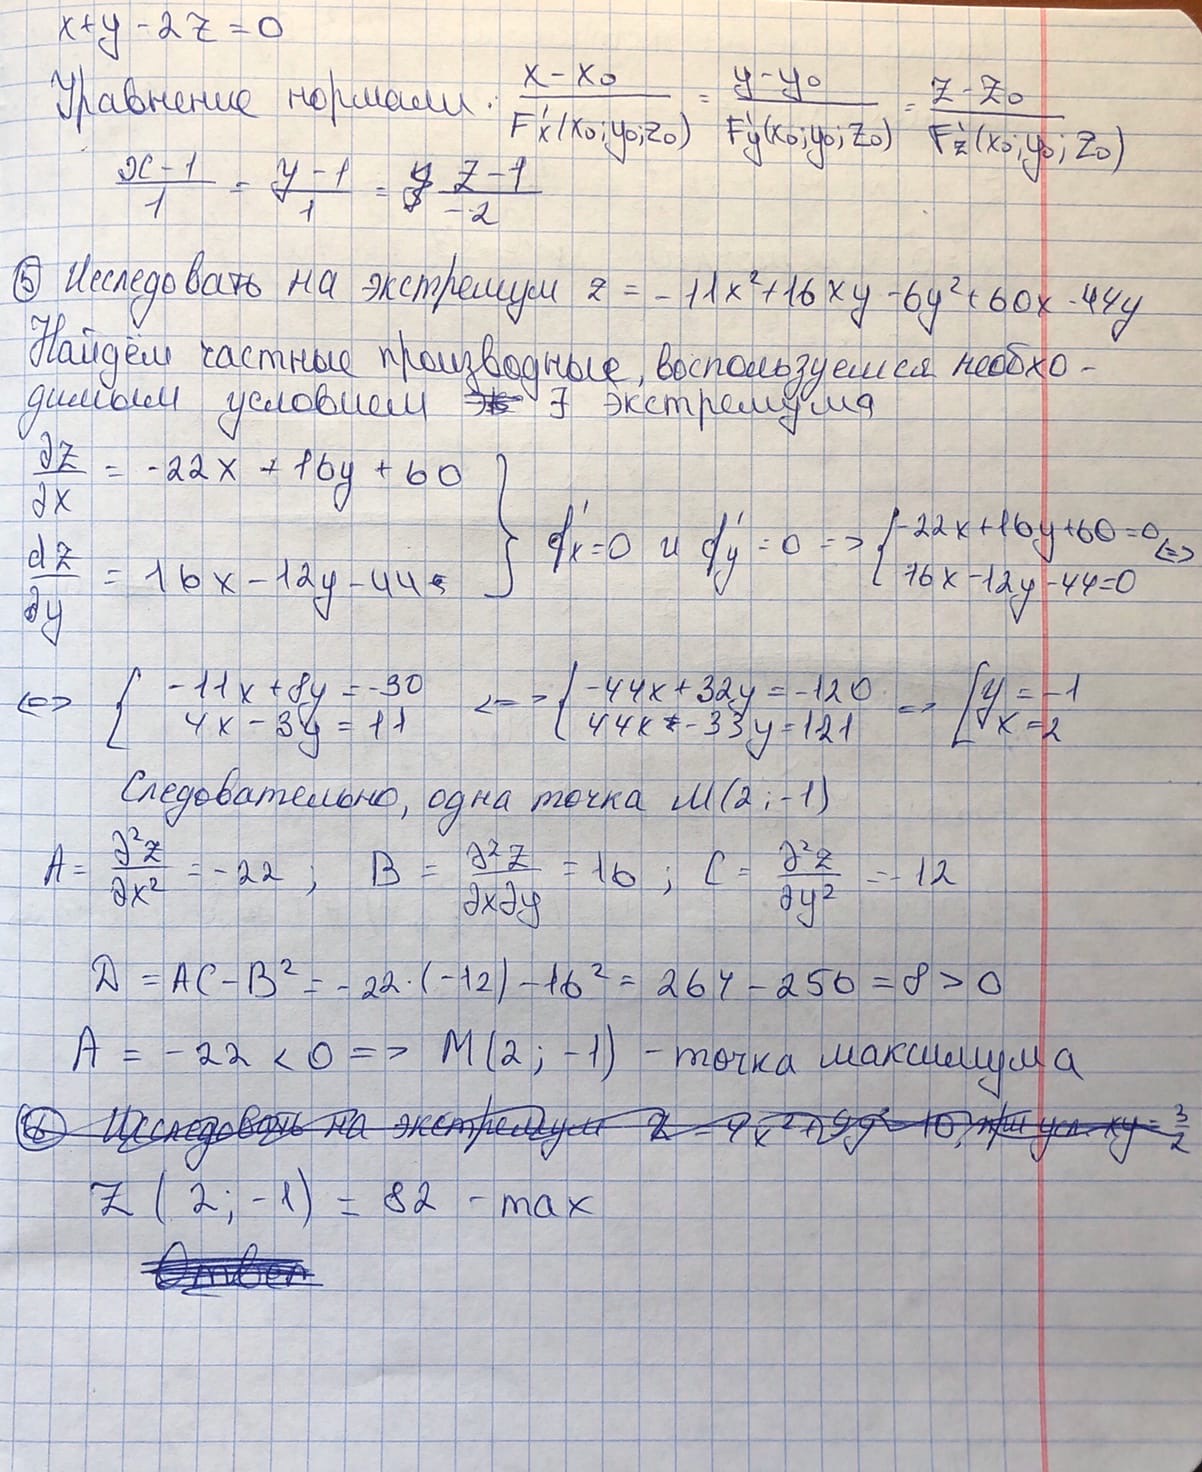 x+y-2z=0
Уравнение нормали. (x-x₀)/(F'x(x₀;y₀;z₀)) = (y-y₀)/(F'y(x₀;y₀;z₀)) = (z-z₀)/(F'z(x₀;y₀;z₀))
(x-1)/1 = (y-1)/1 = (z-1)/-2
⑤ Исследовать на экстремум z = -11x²+16xy-6y²+60x-44y
Найдём частные производные, воспользуемся необхо-
димым условием ∃ экстремума
∂z/∂x = -22x+16y+60
dz/∂y = 16x-12y-44
} f'x=0 и f'y=0 => { -22x+16y+60=0 <=>
16x-12y-44=0
<=> { -11x+8y=-30 <=> { -44x+32y=-120 => [ y=-1
4x-3y=11 44x-33y=121 x=2
Следовательно, одна точка M(2;-1)
A = ∂²z/∂x² = -22; B = ∂²z/∂x∂y = 16; C = ∂²z/∂y² = -12
D = AC-B² = -22·(-12)-16² = 264-256 = 8 > 0
A = -22 < 0 => M(2;-1) - точка максимума
Исследовать на экстремум
z(2;-1) = 82 - max